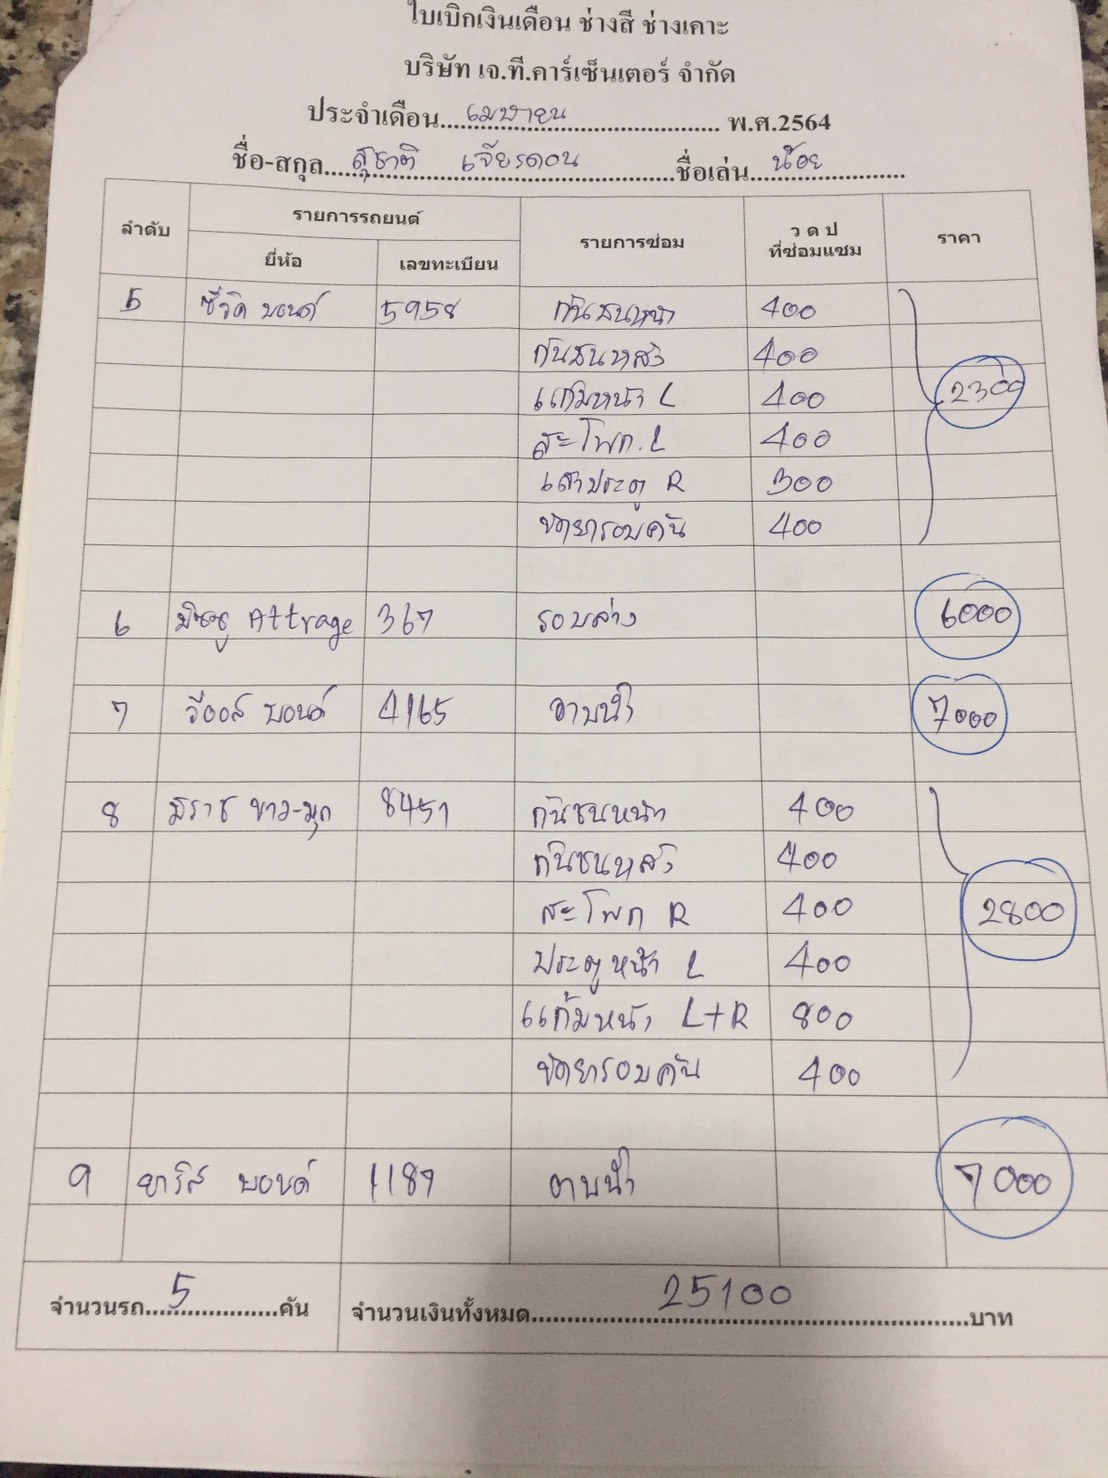 ใบเบิกเงินเดือน ช่างสี ช่างเคาะ
บริษัท เจ.ที.คาร์เซ็นเตอร์ จำกัด
ประจำเดือน เมษายน พ.ศ.2564
ชื่อ-สกุล สุชาติ เจียรดอน ชื่อเล่น น้อย
ลำดับ รายการรถยนต์ รายการซ่อม ว ด ป ที่ซ่อมแซม ราคา
ยี่ห้อ เลขทะเบียน
5 ซีวิค บอนด์ 5958 กันชนหน้า 400
กันชนหลัง 400
แก้มหน้า L 400 2300
สะโพก.L 400
เสาประตู R 300
ขัดยารอบคัน 400
6 มิซซู Attrage 367 รอบล่าง 6000
7 วีออส บอนด์ 4165 อาบน้ำ 7000
8 มิราช ขาว-มุก 8451 กันชนหน้า 400
กันชนหลัง 400
สะโพก R 400 2800
ประตูหน้า L 400
แก้มหน้า L+R 800
ขัดยารอบคัน 400
9 ยาริส บอนด์ 1189 อาบน้ำ 7000
จำนวนรถ 5 คัน จำนวนเงินทั้งหมด 25100 บาท